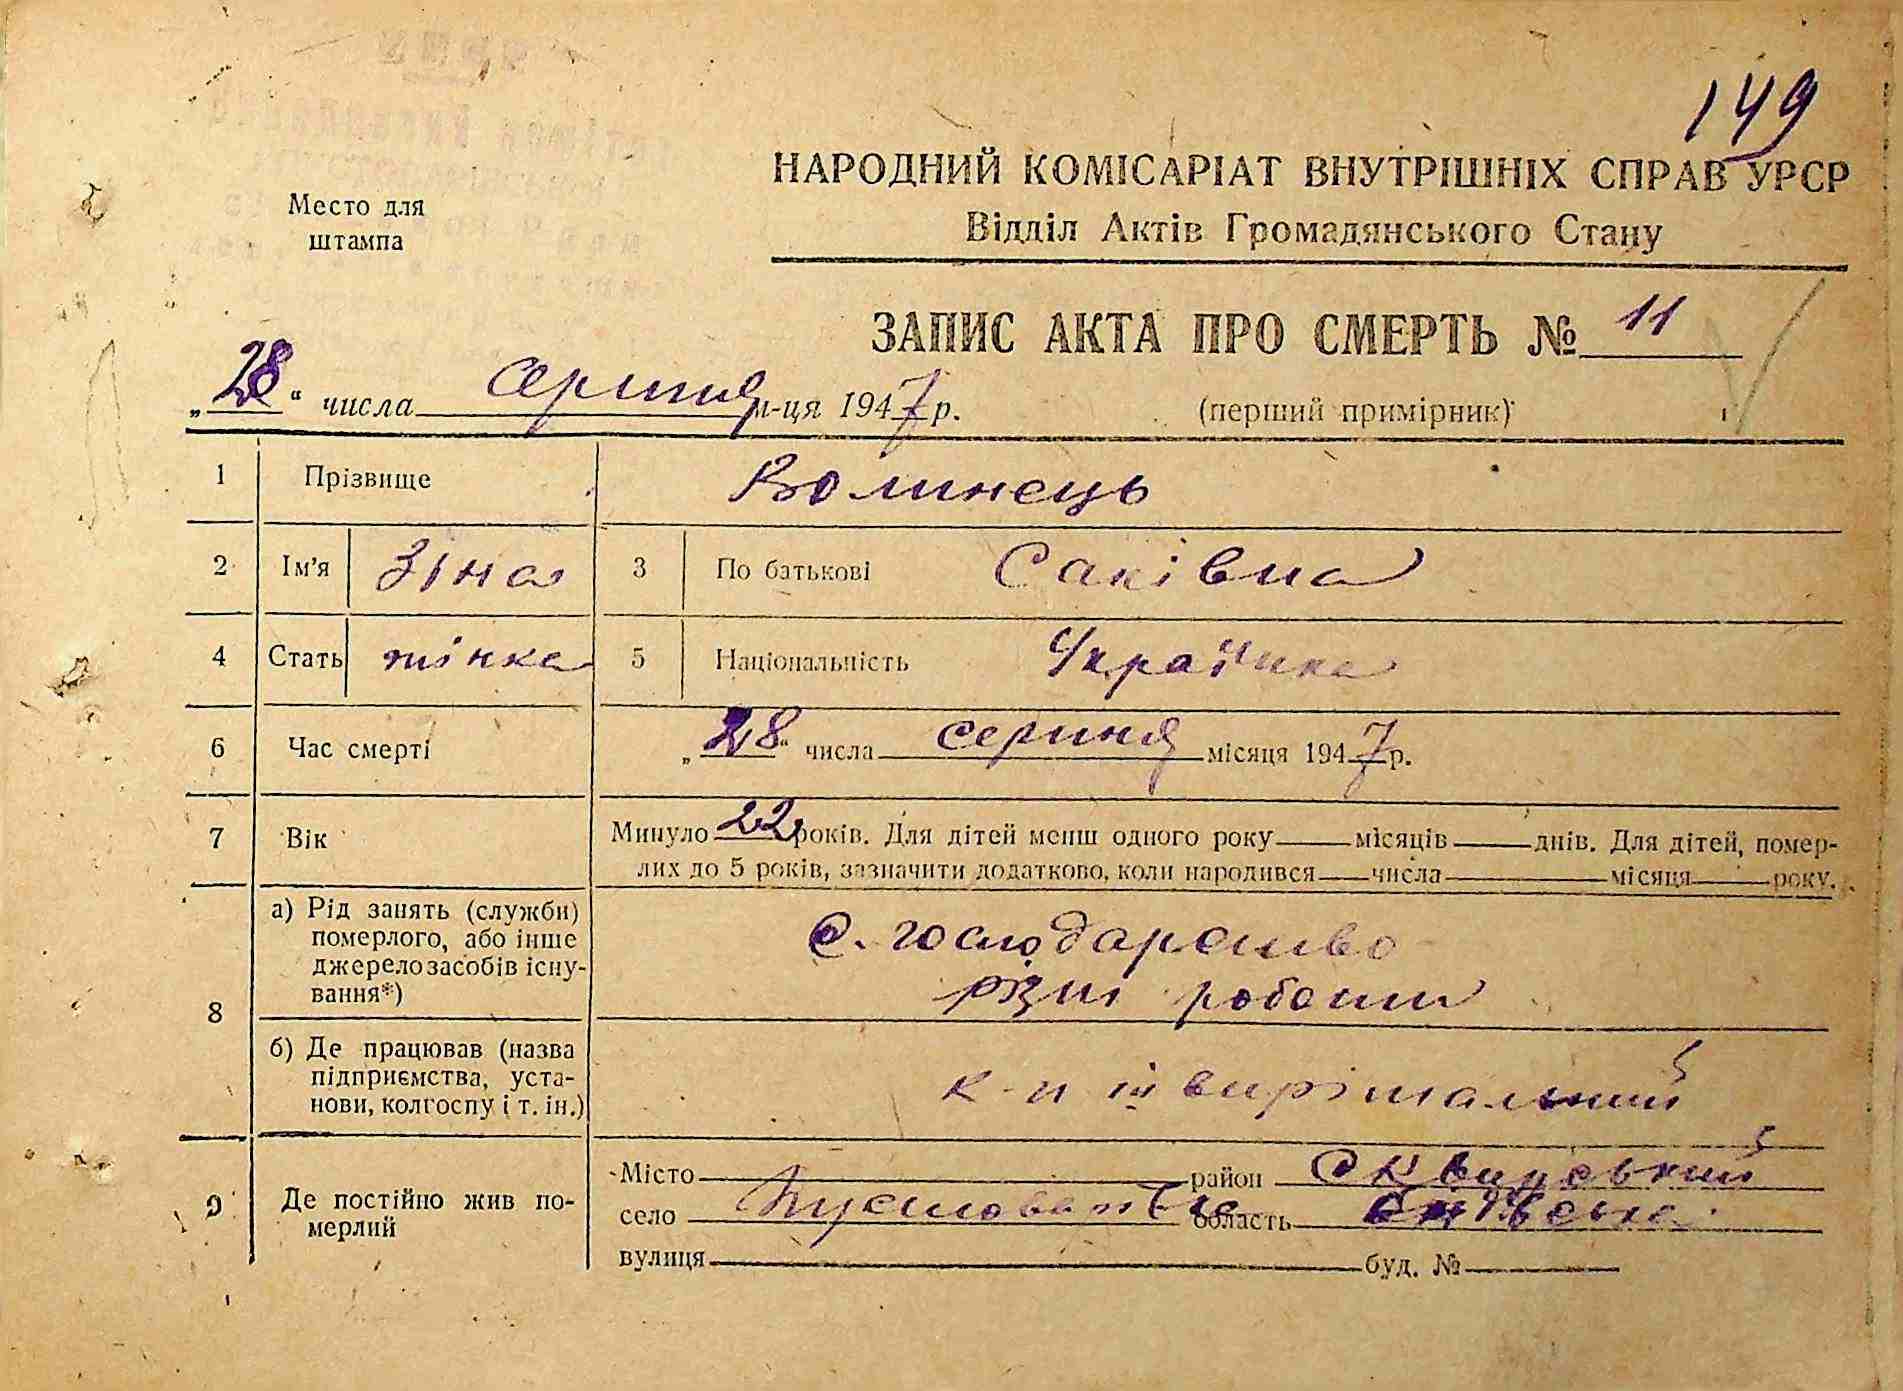 149
НАРОДНИЙ КОМІСАРІАТ ВНУТРІШНІХ СПРАВ УРСР
Відділ Актів Громадянського Стану
Место для
штампа
ЗАПИС АКТА ПРО СМЕРТЬ № 11
„28“ числа серпня м-ця 1947 р.
(перший примірник)
1 Прізвище Волинець
2 Ім'я Зіна 3 По батькові Саківна
4 Стать жінка 5 Національність Українка
6 Час смерті „28“ числа серпня місяця 1947 р.
7 Вік Минуло 22 років. Для дітей менш одного року місяців днів. Для дітей, помер-
лих до 5 років, зазначити додатково, коли народився числа місяця року.
8 а) Рід занять (служби)
померлого, або інше
джерело засобів існу-
вання*)
с. господарство
різні роботи
б) Де працював (назва
підприємства, уста-
нови, колгоспу і т. ін.)
к-п ІІІ вирішальний
9 Де постійно жив по-
мерлий
Місто район Сквирський
село область Київська
вулиця буд. №